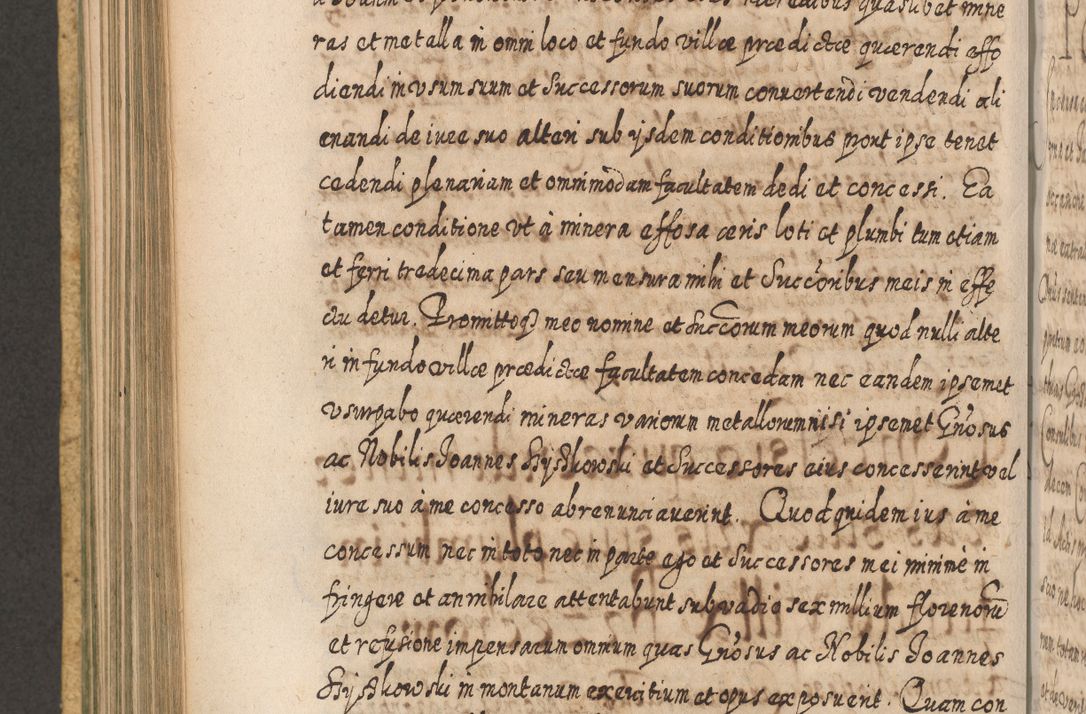 ras et metalla in omni loco et fundo villæ prædictæ quærendi effo
diendi in vsum suum et Successorum suorum conuertendi vendendi ali
enandi de iure suo alteri sub ijsdem conditionibus prout ipse tenet
cedendi plenariam et omnimodam facultatem dedi et concessi. Ea
tamen conditione vt à minera effosa æris loti et plumbi tum etiam
et ferri tredecima pars seu mensura mihi et Succoribus meis in effe
ctu detur. Promittoq meo nomine et Succorum meorum quod nulli alte
ri in fundo villæ prædictæ facultatem concedam nec eandem ipsemet
vsurpabo quærendi mineras variorum metallorum nisi ipsemet Gnosus
ac Nobilis Joannes et Successores eius concesserint vel
iure suo à me concesso abrenunciauerint. Quod quidem ius à me
concessum nec in toto nec in parte ego et Successores mei minimè in
fringere et annihilare attentabunt sub vadio sex millium florenorū
et refusione impensarum omnium quas Gnosus ac Nobilis Joannes
in montanum exercitium et opus exposuerit. Quam con